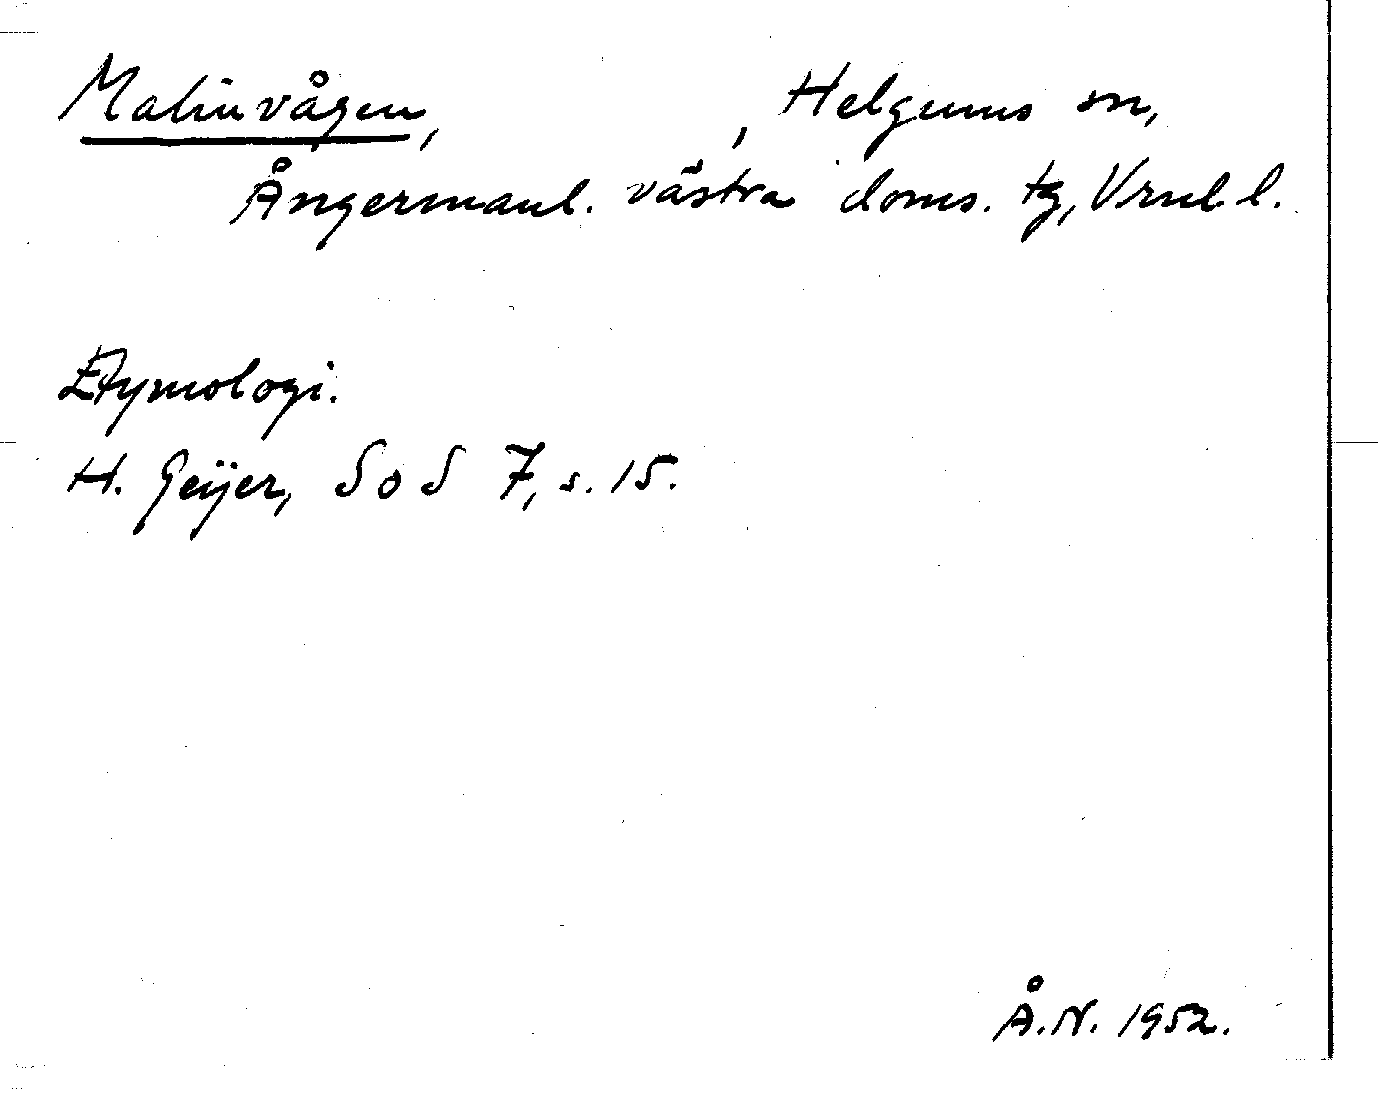 Malinvågen, , Helgums sn,
Ångermanl. västra doms. tg, Vrnl l.
Etymologi.
H. Geijer, SoS 7, s. 15.
Å.N. 1952.